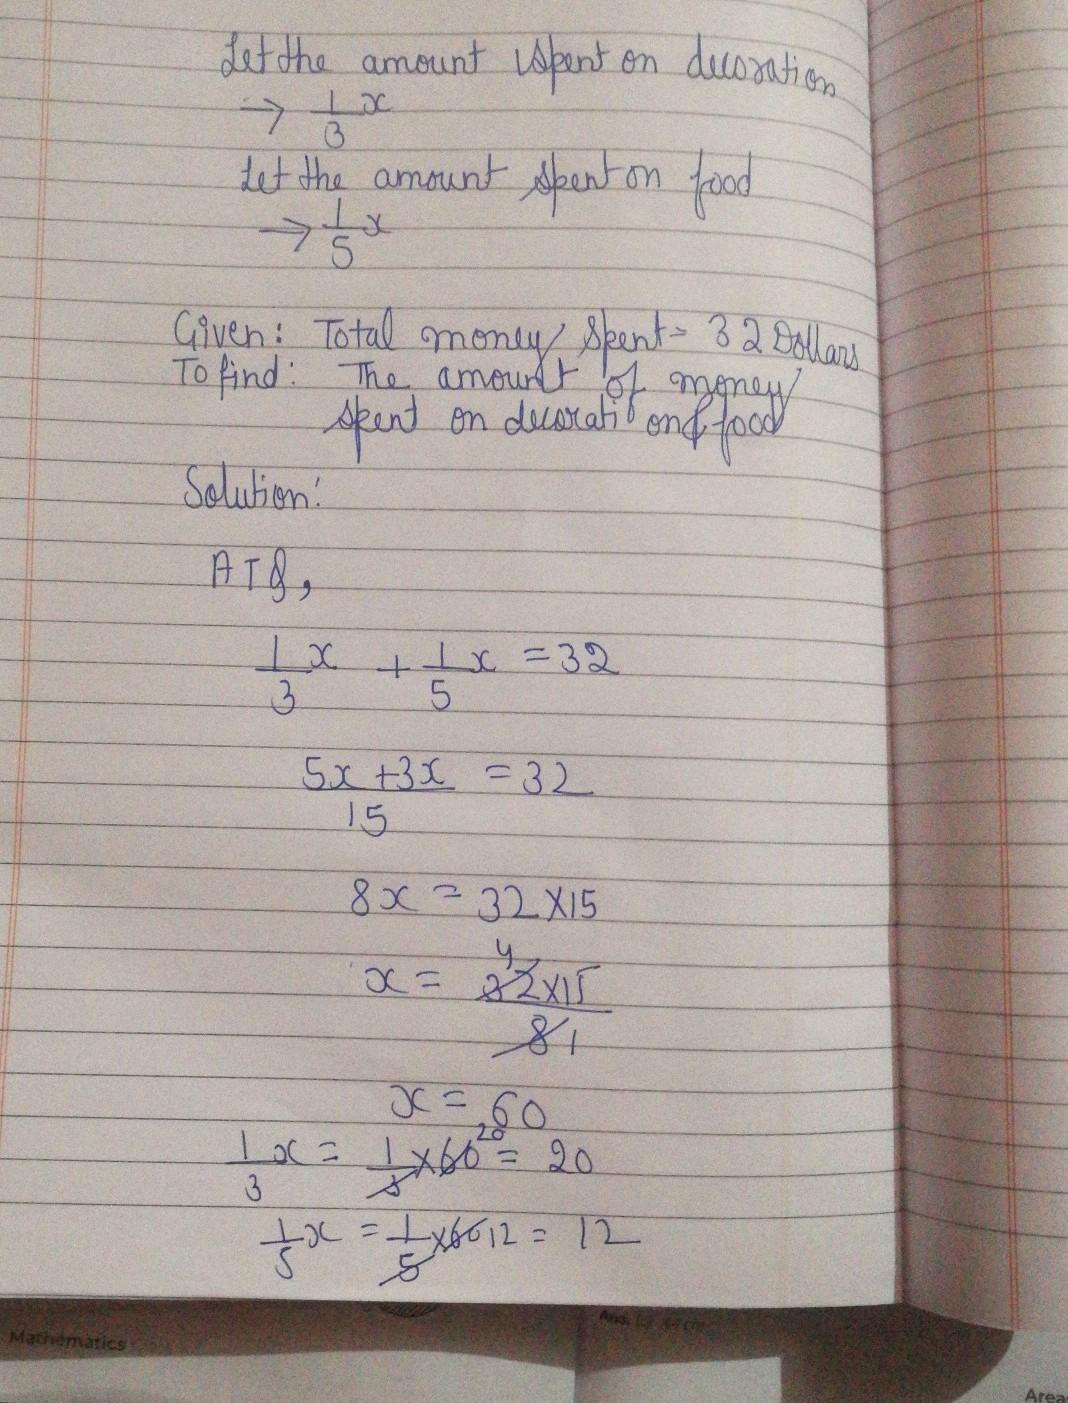 Let the amount spent on decoration
→ 1/3 x
Let the amount spent on food
→ 1/5 x
Given: Total money spent = 32 Dollars
To find: The amount of money
spent on decoration & food
Solution:
ATQ,
1/3 x + 1/5 x = 32
5x + 3x / 15 = 32
8x = 32 × 15
x = 32 4 × 15 / 8 1
x = 60
1/3 x = 1/3 × 60 20 = 20
1/5 x = 1/5 × 60 12 = 12
Mathematics
Area